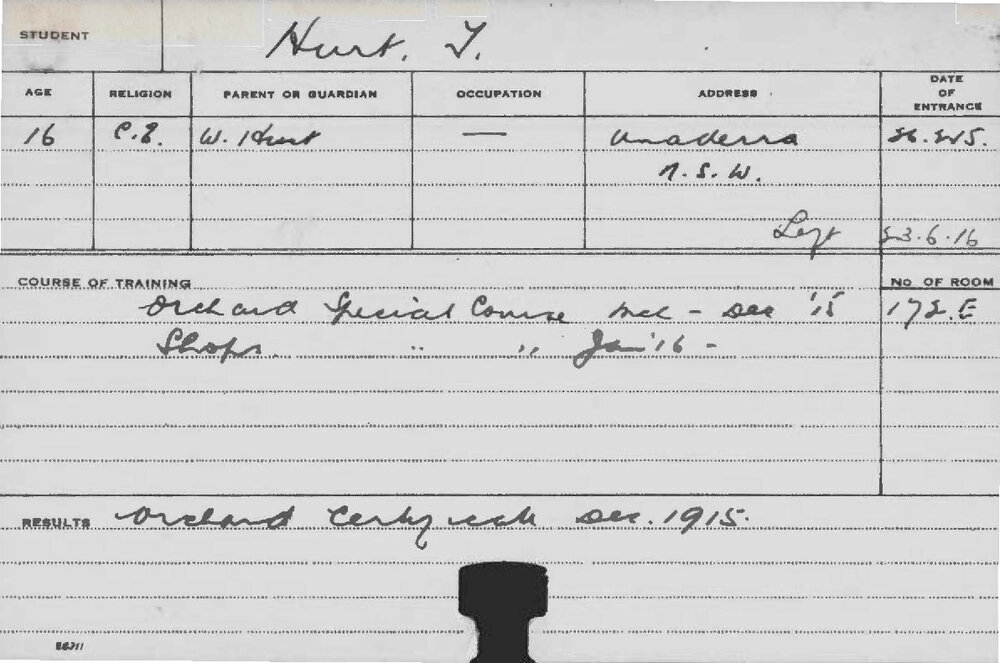 STUDENT Hurt. T.
AGE RELIGION PARENT OR GUARDIAN OCCUPATION ADDRESS DATE OF ENTRANCE
16 C.E. W. Hurt — Unaderra
N. S. W.
Left 23.6.16
COURSE OF TRAINING No OF ROOM
Orchard Special Course - Dec '15 172.E
Shops " " Jan '16 -
RESULTS Orchard Certificate Dec. 1915.